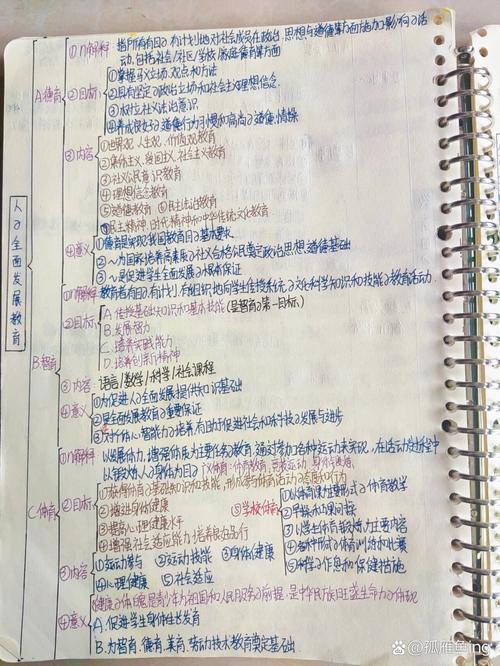 人の全面发展教育
A.德育
①解释 指所有有目的有计划地对社会成员在政治、思想与道德等方面施加影响的活
动,包括社会/社区/学校/家庭德育等方面
②目标
①掌握马义立场、观念和方法
②具有坚定的政治立场和社会主义理想信念
③树立社义法治意识
④养成良好的道德行为习惯和高尚的道德情操
③内容
①世界观、人生观、价值观教育
②集体主义、爱国主义、社会主义教育
③社义公民意识教育
④理想信念教育
⑤道德教育 ⑥民主法治教育
⑦民主精神、时代精神和中华传统文化教育
④意义
①德育是实现我国教育目的的基本要求
②~为国家培养高素质的社义合格公民奠定政治思想、道德基础
③~是促进学生全面发展的根本保证
B.智育
①解释 教育者有目的、有计划、有组织地向学生传授系统的文化科学知识和技能的教育活动.
②目标
A.传授基础知识和基本技能(是智育的第一目标)
B.发展智力
C.培养实践能力
D.培养创新精神
③内容: 语言/数学/科学/社会课程
④意义
①为促进人的全面发展提供知识基础
②是全面发展教育的重要保证
③对个体心智能力的培养,有助于促进社会和科技的发展与进步
C.体育
①解释 以发展体力、增强体质为主要任务的教育,通过参加各种运动来实现,在活动过程中
以锻炼人的身体为目的
②目标
①获得体育的基础知识和技能,形成参与体育活动的态度和行为
②增进身体健康
③提高心理健康水平
④增强社会适应能力,培养良好品行
⑤学校体育
①以体育课为主要形式的体育教学
②早操和课间操
③以学生体育锻炼为主要内容
④多种形式的体育训练和比赛
⑤科学的作息和保健措施
③内容
①运动参与 ②运动技能 ③身体健康
④心理健康 ⑤社会适应
④意义
健康的体魄是青少年为祖国和人民服务的前提,是中华民族旺盛生命力的体现
A.促进学生身体生长发育
B.为智育、德育、美育、劳动技术教育奠定基础.
@孤雁鱼ing